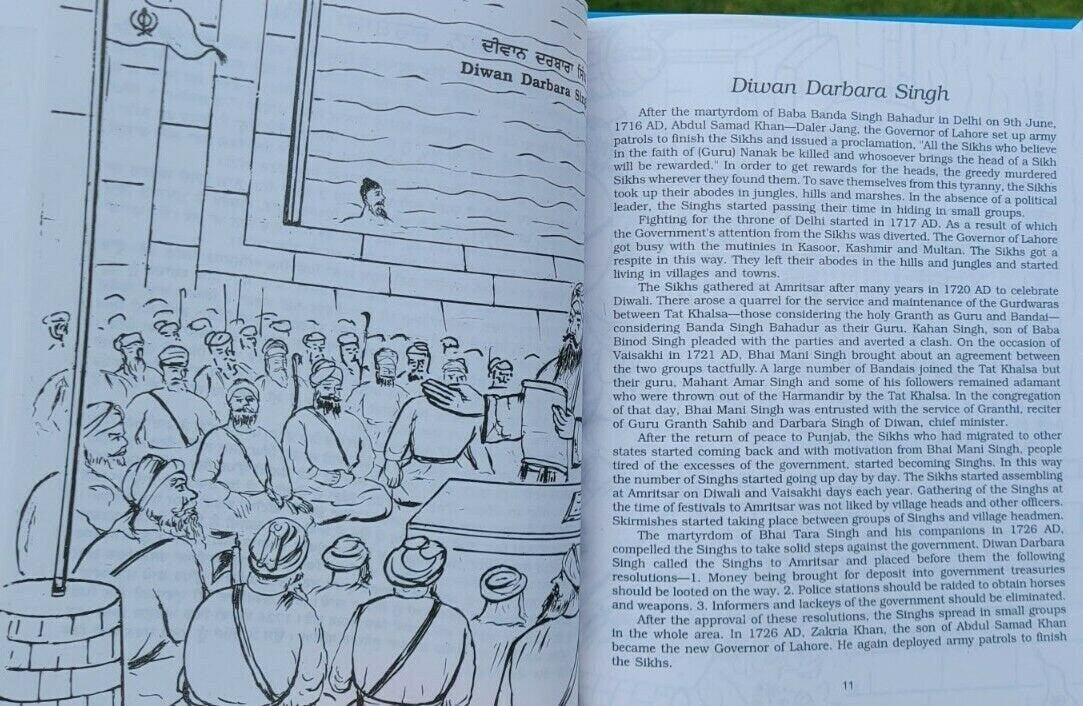 ਦੀਵਾਨ ਦਰਬਾਰਾ
Diwan Darbara
Diwan Darbara Singh
After the martyrdom of Baba Banda Singh Bahadur in Delhi on 9th June,
1716 AD, Abdul Samad Khan—Daler Jang, the Governor of Lahore set up army
patrols to finish the Sikhs and issued a proclamation, "All the Sikhs who believe
in the faith of (Guru) Nanak be killed and whosoever brings the head of a Sikh
will be rewarded." In order to get rewards for the heads, the greedy murdered
Sikhs wherever they found them. To save themselves from this tyranny, the Sikhs
took up their abodes in jungles, hills and marshes. In the absence of a political
leader, the Singhs started passing their time in hiding in small groups.
Fighting for the throne of Delhi started in 1717 AD. As a result of which
the Government's attention from the Sikhs was diverted. The Governor of Lahore
got busy with the mutinies in Kasoor, Kashmir and Multan. The Sikhs got a
respite in this way. They left their abodes in the hills and jungles and started
living in villages and towns.
The Sikhs gathered at Amritsar after many years in 1720 AD to celebrate
Diwali. There arose a quarrel for the service and maintenance of the Gurdwaras
between Tat Khalsa—those considering the holy Granth as Guru and Bandai—
considering Banda Singh Bahadur as their Guru. Kahan Singh, son of Baba
Binod Singh pleaded with the parties and averted a clash. On the occasion of
Vaisakhi in 1721 AD, Bhai Mani Singh brought about an agreement between
the two groups tactfully. A large number of Bandais joined the Tat Khalsa but
their guru, Mahant Amar Singh and some of his followers remained adamant
who were thrown out of the Harmandir by the Tat Khalsa. In the congregation
of that day, Bhai Mani Singh was entrusted with the service of Granthi, reciter
of Guru Granth Sahib and Darbara Singh of Diwan, chief minister.
After the return of peace to Punjab, the Sikhs who had migrated to other
states started coming back and with motivation from Bhai Mani Singh, people
tired of the excesses of the government, started becoming Singhs. In this way
the number of Singhs started going up day by day. The Sikhs started assembling
at Amritsar on Diwali and Vaisakhi days each year. Gathering of the Singhs at
the time of festivals to Amritsar was not liked by village heads and other officers.
Skirmishes started taking place between groups of Singhs and village headmen.
The martyrdom of Bhai Tara Singh and his companions in 1726 AD,
compelled the Singhs to take solid steps against the government. Diwan Darbara
Singh called the Singhs to Amritsar and placed before them the following
resolutions—1. Money being brought for deposit into government treasuries
should be looted on the way. 2. Police stations should be raided to obtain horses
and weapons. 3. Informers and lackeys of the government should be eliminated.
After the approval of these resolutions, the Singhs spread in small groups
in the whole area. In 1726 AD, Zakria Khan, the son of Abdul Samad Khan
became the new Governor of Lahore. He again deployed army patrols to finish
the Sikhs.
11